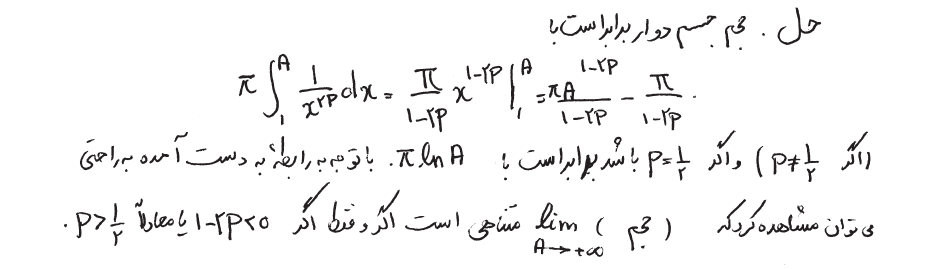 حل . حجم جسم دوار برابر است با
π∫₁ᴬ 1/x^۲P dx = π/(۱-۲P) x^(۱-۲P) |₁ᴬ = πA^(۱-۲P)/(۱-۲P) - π/(۱-۲P) .
(اگر P≠۱/۲) و اگر P=۱/۲ باشد برابر است با π ln A. با توجه به رابطهٔ به دست آمده به راحتی
می توان مشاهده کرد که lim A→+∞ (حجم) متناهی است اگر و فقط اگر ۱-۲P<۰ یا معادلاً P>۱/۲ .